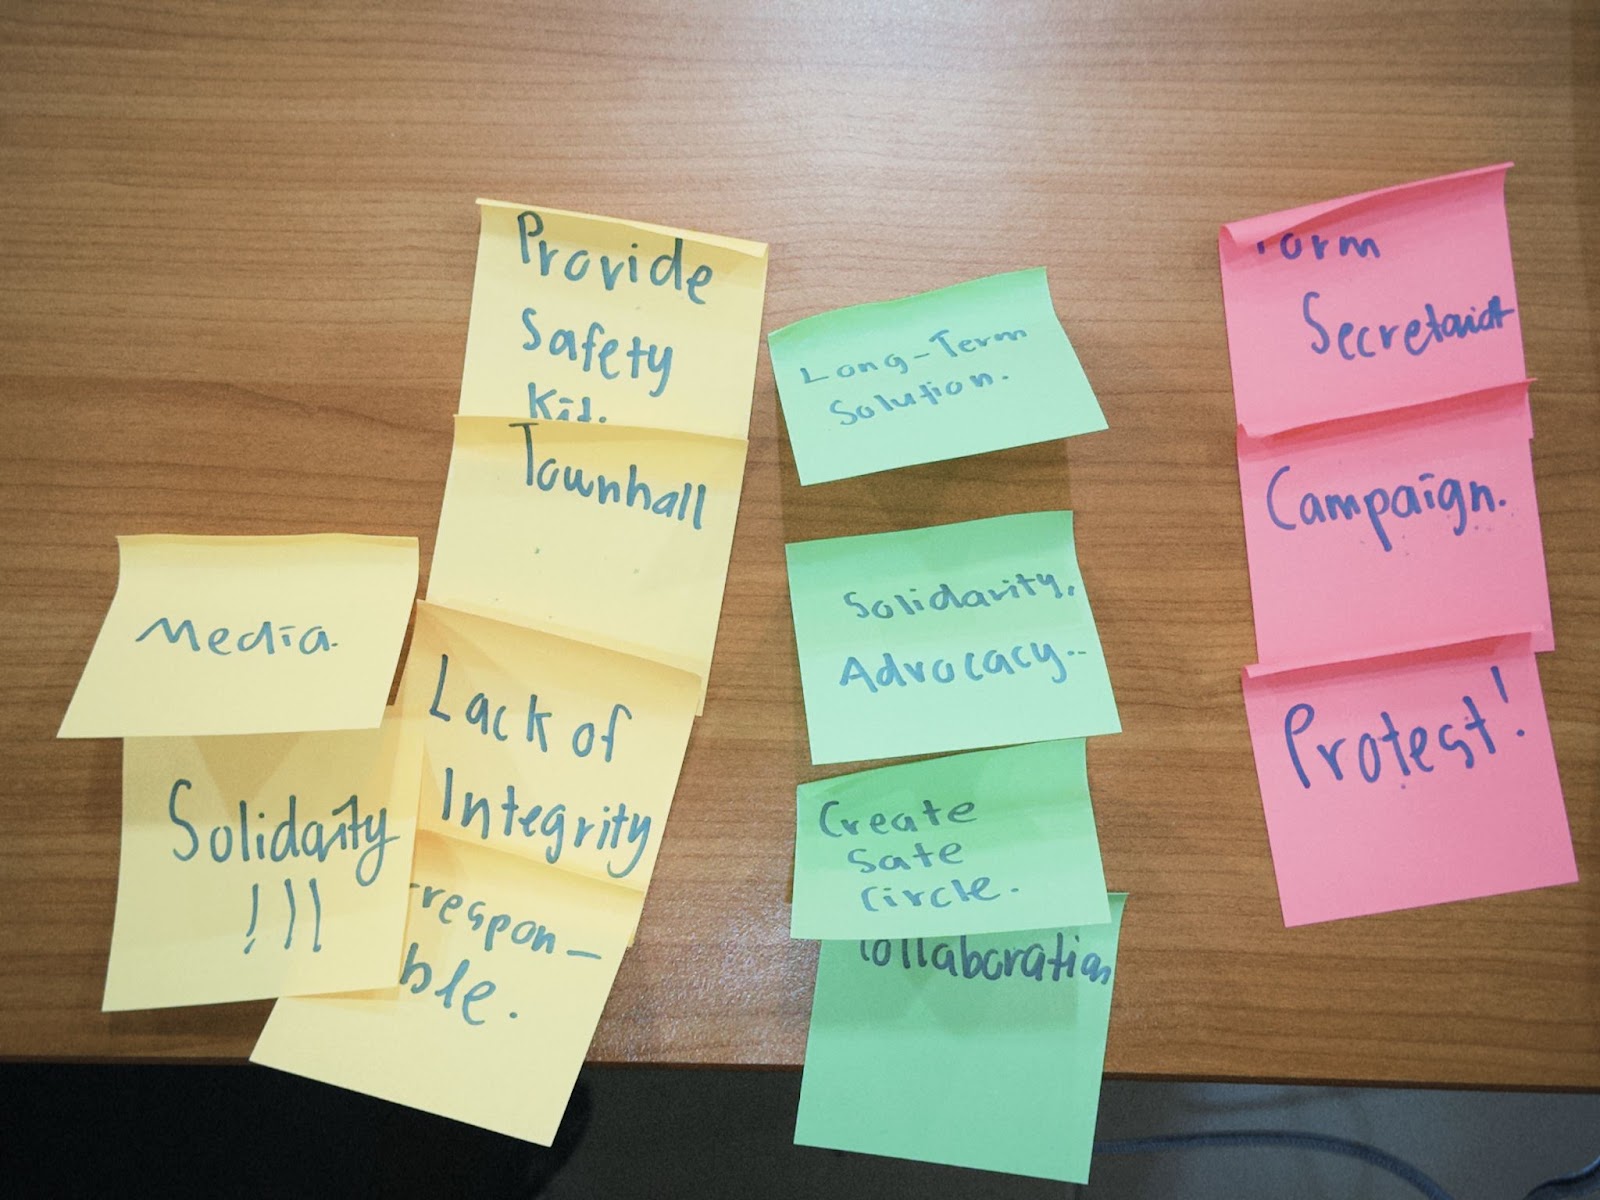 Provide
Safety
Kit.
Townhall
Lack of
Integrity
respon-
ble.
Media.
Solidarity
!!!
Long-Term
Solution.
Solidarity,
Advocacy..
Create
Safe
Circle.
Collaboration
Form
Secretariat
Campaign.
Protest!